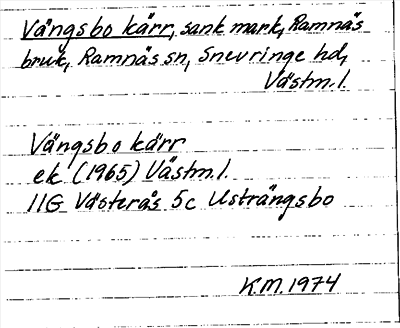 Vängsbo kärr, sank mark, Ramnäs
bruk, Ramnäs sn, Snevringe hd,
Västm.l.
Vängsbo kärr
ek (1965) Västm.l.
11G Västerås 5c Usträngsbo
K.M. 1974